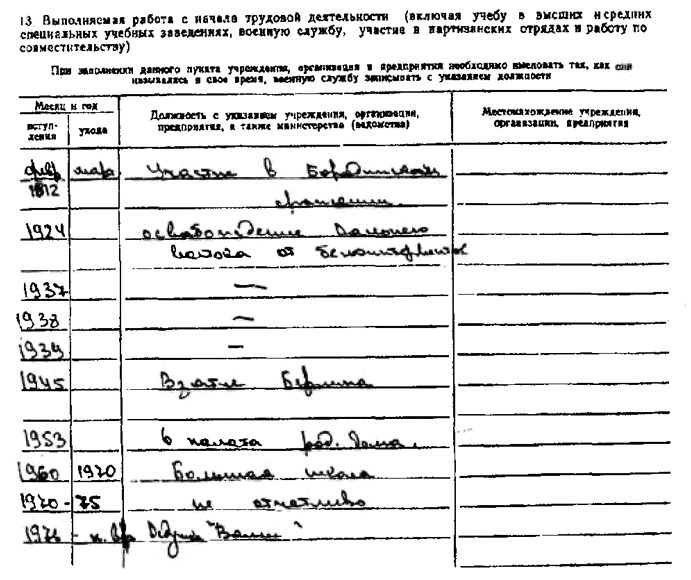 13. Выполняемая работа с начала трудовой деятельности (включая учебу в высших и средних
специальных учебных заведениях, военную службу, участие в партизанских отрядах и работу по
совместительству)
При заполнении данного пункта учреждения, организации и предприятия необходимо именовать так, как они
назывались в свое время, военную службу записывать с указанием должности
Месяц и год
вступ-
ления
ухода
Должность с указанием учреждения, организации,
предприятия, а также министерства (ведомства)
Местонахождение учреждения,
организации, предприятия
февр март Участие в Бородинском
1812 сражении.
1924 освобождение Дальнего
востока от
1937 —
1938 —
1939 —
1945 Взятие Берлина
1953 6 палата род. дома.
1960 1970 Большая школа
1970-75 не отчетливо
1976 - н. вр. "Волки"